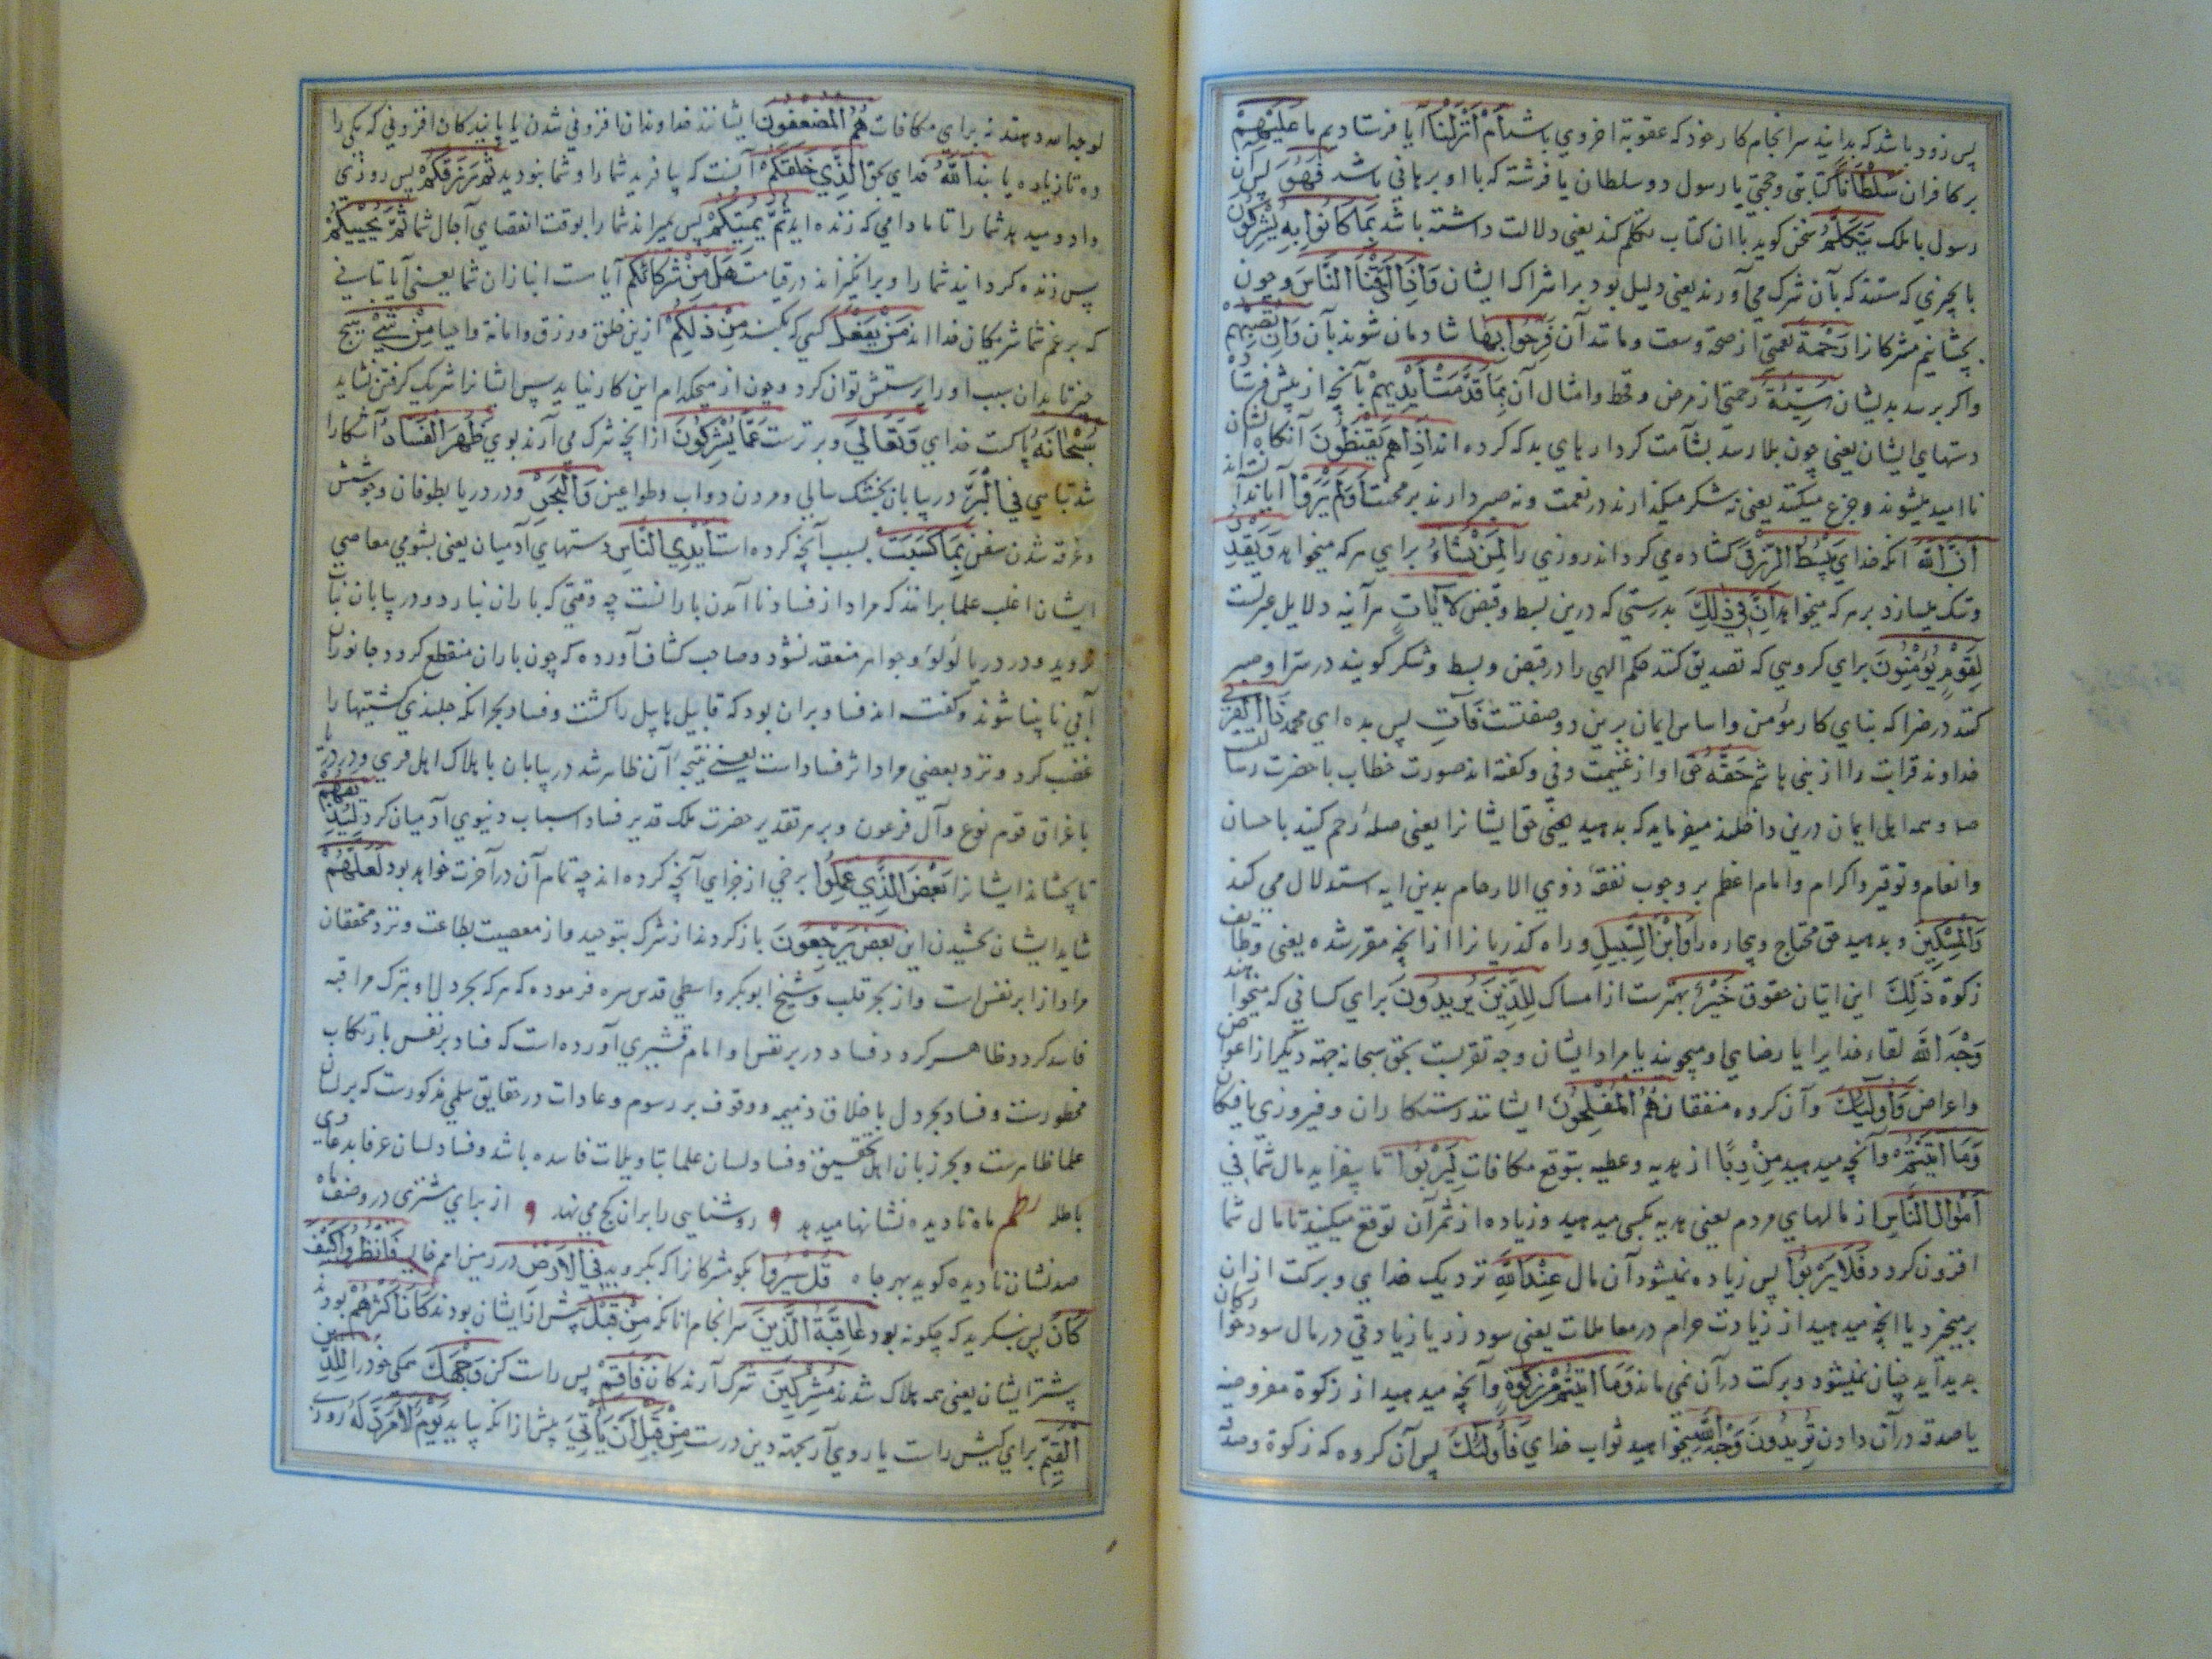 پس زود باشد که بدانید سرانجام کار خود که عقوبة اخروي باشد أَمْ أَنْزَلْنَا آیا فرستادیم ما عَلَيْهِمْ
بر کافران سُلْطَانًا کتابی و حجتی یا رسول دو سلطان یا فرشته که با او برهانی باشد فَهُوَ پس آن
رسول یا ملک يَتَكَلَّمُ سخن کوید یا ان کتاب تکلم کند یعنی دلالت داشته باشد بِمَا كَانُوا بِهِ يُشْرِكُونَ
بانچیزی که هستند که بآن شرک می آورند یعنی دلیل بود بر اشراک ایشان وَإِذَا أَذَقْنَا النَّاسَ و چون
بچشانیم مشرکانرا رَحْمَةً نعمتی از صحة و سعت و مانند آن فَرِحُوا بِهَا شادمان شوند بآن وَإِنْ تُصِبْهُمْ
و اکر برسد بدیشان سَيِّئَةٌ زحمتی از مرض و قحط و امثال آن بِمَا قَدَّمَتْ أَيْدِيهِمْ بآنچه از پیش فرستاده
دستهای ایشان یعنی چون بلا رسد بشآمت کردارهای بد که کرده اند إِذَا هُمْ يَقْنَطُونَ آنکاه ایشان
نا امید میشوند و جزع میکنند یعنی نه شکر میکذارند در نعمت و نه صبر دارند بر محنت أَوَلَمْ يَرَوْا آیا ندانستند
أَنَّ اللَّهَ انکه خدای يَبْسُطُ الرِّزْقَ کشاده می کرداند روزی را لِمَنْ يَشَاءُ برای هر که میخواهد وَيَقْدِرُ
و تنک میسازد بر هر که میخواهد إِنَّ فِي ذَلِكَ بدرستی که درین بسط و قبض لَآيَاتٍ هر آینه دلایل عبرتست
لِقَوْمٍ يُؤْمِنُونَ برای کروهی که تصدیق کنند حکم الهی را در قبض و بسط و شکر کویند در سرا و صبر
کنند در ضرا که بنای کار مؤمن و اساس ایمان برین دو صفتست فَآتِ پس بده ای محمد ذَا الْقُرْبَى
خداوند قرابت را از بنی هاشم حَقَّهُ حق او از غنیمت و فی و کفته اند صورت خطاب با حضرت رسالت
صلا و همه اهل ایمان درین داخلند میفرماید که بدهید یعنی حق ایشانرا یعنی صلهٔ رحم کنید باحسان
و انعام و توقیر و اکرام و امام اعظم بر وجوب نفقهٔ ذوی الارحام بدین ایه استدلال می کند
وَالْمِسْكِينَ و بدهید حق محتاج و بیچاره را وَابْنَ السَّبِيلِ و راه کذریانرا از انچه مقرر شده یعنی وظایف
زکوة ذَلِكَ این اتیان حقوق خَيْرٌ بهترست از امساک لِلَّذِينَ يُرِيدُونَ برای کسانی که میخواهند
وَجْهَ اللَّهِ لقاء خدایرا یا رضای او میجویند یا مراد ایشان وجه تقربست بحق سبحانه جهة دیگر از اعواض
و اعراض وَأُولَئِكَ وآن کروه منفقان هُمُ الْمُفْلِحُونَ ایشانند رستکاران و فیروزی یافتکان
وَمَا آتَيْتُمْ وآنچه میدهید مِنْ رِبًا از هدیه و عطیه بتوقع مکافات لِيَرْبُوَا تا بیفزاید مال شما فِي
أَمْوَالِ النَّاسِ از مالهای مردم یعنی هدیه بکسی میدهید و زیاده از ثمر آن توقع میکنید تا مال شما
افزون کردد فَلَا يَرْبُوا پس زیاده نمیشود آن مال عِنْدَ اللَّهِ نزدیک خدای و برکت از ان
برمیخیزد یا انچه میدهید از زیادت حرام در معاملات یعنی سود زر یا زیادوتی در مال سود خوارکان
بدید آید چنان نمیشود و برکت در آن نمی ماند وَمَا آتَيْتُمْ مِنْ زَكَوةٍ وآنچه میدهید از زکوة مفروضه
یا صدقه در آن دادن تُرِيدُونَ وَجْهَ اللَّهِ میخواهید ثواب خدای فَأُولَئِكَ پس آن کروه که زکوة و صدقه
لوجه الله دهند نه برای مکافات هُمُ الْمُضْعِفُونَ ایشانند خداوندان افزونی شدن یا یابندکان افزونی که یکی را
ده تا زیاده یابند اللَّهُ خدای بحق الَّذِي خَلَقَكُمْ آنست که بیافرید شما را و شما نبودید ثُمَّ رَزَقَكُمْ پس روزی
داد و میدهد شما را تا مادامی که زنده اید ثُمَّ يُمِيتُكُمْ پس بمیراند شما را بوقت انقضای آجال شما ثُمَّ يُحْيِيكُمْ
پس زنده کرداند شما را و برانکیزاند در قیامت هَلْ مِنْ شُرَكَائِكُمْ آیا هست انبازان شما یعنی آیا بتانی
که بزعم شما شریکان خدا اند مَنْ يَفْعَلُ کسی که بکند مِنْ ذَلِكُمْ ازین خلق و رزق و اماته و احیا مِنْ شَيْءٍ هیچ
چیز تا بدان سبب او را پرستش توان کرد و چون از هیچکدام این کار نیاید پس ایشانرا شریک کرفتن نشاید
سُبْحَانَهُ پاکست خدای وَتَعَالَى و برترست عَمَّا يُشْرِكُونَ از انچه شرک می آرند بوی ظَهَرَ الْفَسَادُ آشکارا
شد تباهی فِي الْبَرِّ در بیابان بخشک سالی و مردن دواب و طواعین وَالْبَحْرِ و در دریا بطوفان و جوشش
و غرقه شدن سفن بِمَا كَسَبَتْ بسبب آنچه کرده است أَيْدِي النَّاسِ دستهای آدمیان یعنی بشومی معاصی
ایشان اغلب علما برانند که مراد از فساد نا آمدن بارانست چه وقتی که باران نبارد و در بیابان نبات
نروید و در دریا لؤلؤ و جواهر منعقد نشود و صاحب کشاف آورده که چون باران منقطع کردد جانوران
آبی نابینا شوند و کفته اند فساد بر ان بود که قابیل هابیل را کشت و فساد بحر انکه جلندی کشتیها را
غصب کرد و نزد بعضی مراد اثر فساد است یعنی نتیجهٔ آن ظاهر شد در بیابان با هلاک اهل قری و در دریا
باغراق قوم نوح و آل فرعون و بهر تقدیر حضرت ملک قدیر فساد اسباب دنیوی آدمیان کرد لِيُذِيقَهُمْ
تا بچشاند ایشانرا بَعْضَ الَّذِي عَمِلُوا برخی از جزای آنچه کرده اند چه تمام آن در آخرت خواهد بود لَعَلَّهُمْ
شاید ایشان بچشیدن این بعض يَرْجِعُونَ باز کردند از شرک بتوحید و از معصیت بطاعت و نزد محققان
مراد از بر نفس است و از بحر قلب و شیخ ابوبکر واسطی قدس سره فرموده که هر که بحر دل او بترک مراقبه
فاسد کردد ظاهر کردد فساد در بر نفس او امام قشیری آورده است که فساد بر نفس بارتکاب
محظورست و فساد بحر دل باخلاق ذمیمه و وقوف بر رسوم و عادات در حقایق سلمی مذکورست که بر لسان
علما ظاهرست و بحر زبان اهل تحقیق و فساد لسان علما بتاویلات فاسده باشد و فساد لسان عرفا بدعاوی
باطله نظم ماه نادیده نشانها میدهد روشنایی را بدان کج می نهد از برای مشتری در وصف ماه
صد نشان نادیده کوید بهر جاه قُلْ سِيرُوا بکو مشرکانرا که بکروید فِي الْأَرْضِ در زمین امم خالیه فَانْظُرُوا كَيْفَ
كَانَ پس بنکرید که چکونه بود عَاقِبَةُ الَّذِينَ سرانجام انانکه مِنْ قَبْلُ پیش از ایشان بودند كَانَ أَكْثَرُهُمْ بودند
پیشتر ایشان یعنی همه هلاک شدند مُشْرِكِينَ شرک آرندکان فَأَقِمْ پس راست کن وَجْهَكَ همکی خود را لِلدِّينِ
الْقَيِّمِ برای کیش راست یا روی آر بجهة دین درست مِنْ قَبْلِ أَنْ يَأْتِيَ پیش از انکه بیاید يَوْمٌ لَا مَرَدَّ لَهُ روز